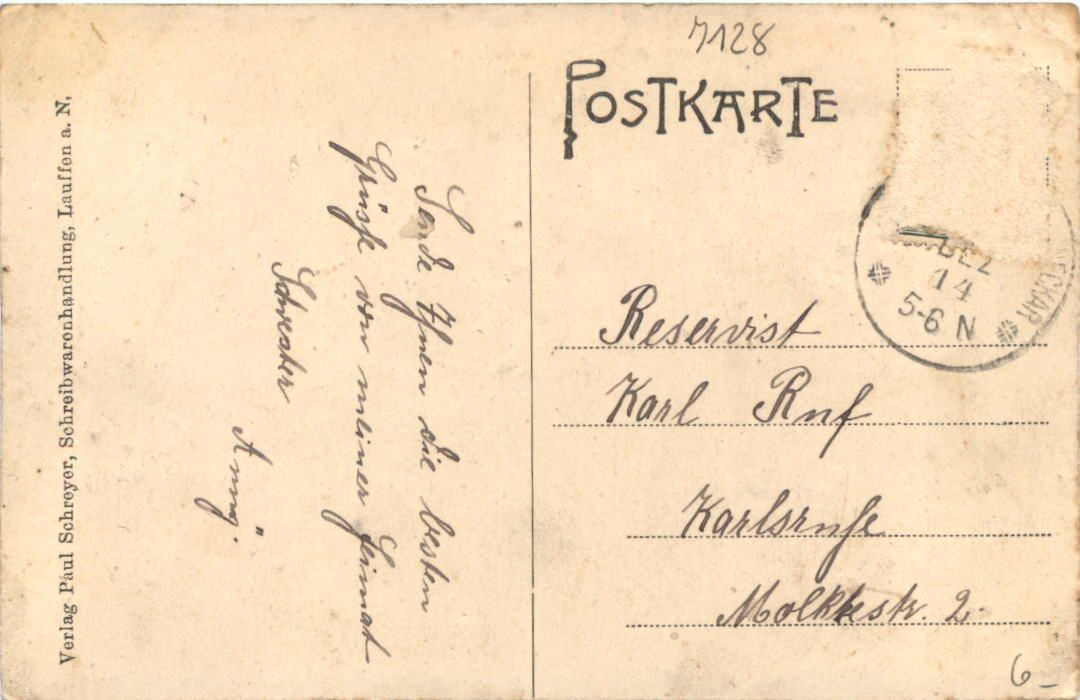 7128
POSTKARTE
DEZ
14
5-6 N
NECKAR
Sende Ihnen die besten
Grüsse von meiner Heimat
Schwester
Reservist
Karl Ruf
Karlsruhe
Moltkestr. 2.
6 –
Verlag Paul Schreyer, Schreibwarenhandlung, Lauffen a. N.